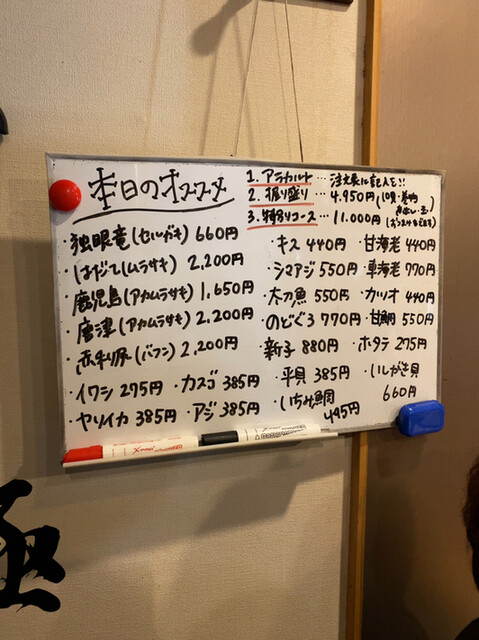 本日のオススメ
1. アラカルト…注文表に記入を!!
2. 握り盛り…4.950円(10貫・巻物
3. 特切りコース…11.000円
・独眼竜(セルガキ) 660円
・はだて(ムラサキ) 2,200円
・鹿児島(アカムラサキ) 1,650円
・唐津(アカムラサキ) 2,200円
・赤利尻(バフン) 2,200円
・イワシ 275円 ・カスゴ 385円
・ヤリイカ 385円 ・アジ 385円
・キス 440円 ・甘海老 440円
・シマアジ 550円 ・車海老 770円
・太刀魚 550円 ・カツオ 440円
・のどぐろ 770円 ・甘鯛 550円
・新子 880円 ・ホタテ 275円
・平貝 385円 ・いしがき貝 660円
・いちみ鯛 495円
極